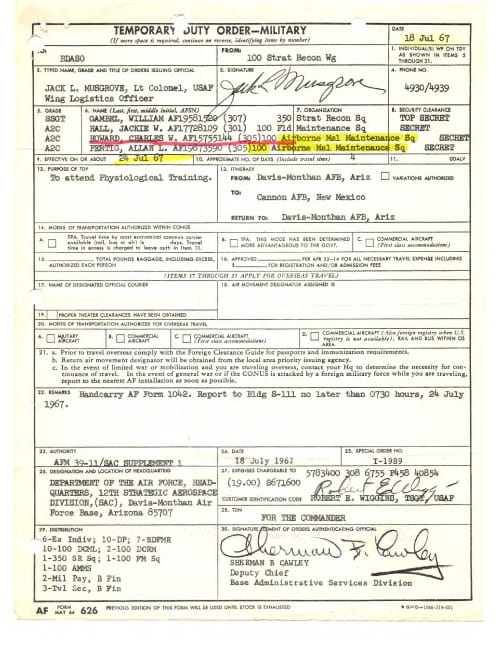 TEMPORARY DUTY ORDER—MILITARY
(If more space is required, continue on reverse, identifying items by number)
DATE
18 Jul 67
TO:
BDASO
FROM:
100 Strat Recon Wg
1. INDIVIDUAL(S) WP ON TDY AS SHOWN IN ITEMS 5 THROUGH 21.
2. TYPED NAME, GRADE AND TITLE OF ORDERS ISSUING OFFICIAL
JACK L. MUSGROVE, Lt Colonel, USAF
Wing Logistics Officer
3. SIGNATURE
Jack L Musgrove
4. PHONE NO.
4930/4939
5. GRADE 6. NAME (Last, first, middle initial, AFSN) 7. ORGANIZATION 8. SECURITY CLEARANCE
SSGT GAMBEL, WILLIAM AF19581520 (307) 350 Strat Recon Sq TOP SECRET
A2C HALL, JACKIE W. AF17728109 (301) 100 Fld Maintenance Sq SECRET
A2C HOWARD, CHARLES W. AF15755144 (305)100 Airborne Msl Maintenance Sq SECRET
A2C FERTIG, ALLAN L. AF19873590 (305)100 Airborne Msl Maintenance Sq SECRET
9. EFFECTIVE ON OR ABOUT 24 Jul 67
10. APPROXIMATE NO. OF DAYS (Include travel time) 4
11. DDALV
12. PURPOSE OF TDY
To attend Physiological Training.
13. ITINERARY
FROM: Davis-Monthan AFB, Ariz
VARIATIONS AUTHORIZED
TO:
Cannon AFB, New Mexico
RETURN TO: Davis-Monthan AFB, Ariz
14. MODES OF TRANSPORTATION AUTHORIZED WITHIN CONUS
A. TPA. Travel time by most economical common carrier available (rail, bus or air) is days. Travel time in excess is charged to leave auth in item 11.
B. TPA. THIS MODE HAS BEEN DETERMINED MORE ADVANTAGEOUS TO THE GOVT.
C. COMMERCIAL AIRCRAFT (First class accommodations)
15. TOTAL POUNDS BAGGAGE, INCLUDING EXCESS, AUTHORIZED EACH PERSON
16. APPROVED PER AFR 35-14 FOR ALL NECESSARY TRAVEL EXPENSE INCLUDING $ FOR REGISTRATION AND/OR ADMISSION FEES
(ITEMS 17 THROUGH 21 APPLY FOR OVERSEAS TRAVEL)
17. NAME OF DESIGNATED OFFICIAL COURIER
18. AIR MOVEMENT DESIGNATOR ASSIGNED IS
19. PROPER THEATER CLEARANCES HAVE BEEN OBTAINED
20. MODES OF TRANSPORTATION AUTHORIZED FOR OVERSEAS TRAVEL
A. MILITARY AIRCRAFT
B. COMMERCIAL AIRCRAFT
C. COMMERCIAL AIRCRAFT (First class accommodations)
D. COMMERCIAL AIRCRAFT (Also foreign registry when U.S. registry is not available), RAIL AND BUS WITHIN OS AREA.
21. a. Prior to travel overseas comply with the Foreign Clearance Guide for passports and immunization requirements.
b. Return air movement designator will be obtained from the local area priority issuing agency.
c. In the event of limited war or mobilization and you are traveling overseas, contact your Hq to determine the necessity for continuance of travel. In the event of general war or if the CONUS is attacked by a foreign military force while you are traveling, report to the nearest AF installation as soon as possible.
22. REMARKS
Handcarry AF Form 1042. Report to Bldg S-111 no later than 0730 hours, 24 July
1967.
23. AUTHORITY
AFM 39-11/SAC SUPPLEMENT 1
24. DATE
18 July 1967
25. SPECIAL ORDER NO.
T-1989
26. DESIGNATION AND LOCATION OF HEADQUARTERS
DEPARTMENT OF THE AIR FORCE, HEAD-
QUARTERS, 12TH STRATEGIC AEROSPACE
DIVISION,(SAC), Davis-Monthan Air
Force Base, Arizona 85707
27. EXPENSES CHARGEABLE TO
5783400 308 6755 P458 40854
(19.00) S671600
CUSTOMER IDENTIFICATION CODE
ROBERT E. WIGGINS, TSGT, USAF
28. TDN
FOR THE COMMANDER
29. DISTRIBUTION
6-Ea Indiv; 10-DP; 7-BDFMR
10-100 DCML; 2-100 DCRM
1-350 SR Sq; 1-100 FM Sq
1-100 AMMS
2-Mil Pay, B Fin
3-Tvl Sec, B Fin
30. SIGNATURE ELEMENT OF ORDERS AUTHENTICATING OFFICIAL
Sherman B. Cawley
SHERMAN B CAWLEY
Deputy Chief
Base Administrative Services Division
AF FORM MAY 64 626 PREVIOUS EDITION OF THIS FORM WILL BE USED UNTIL STOCK IS EXHAUSTED